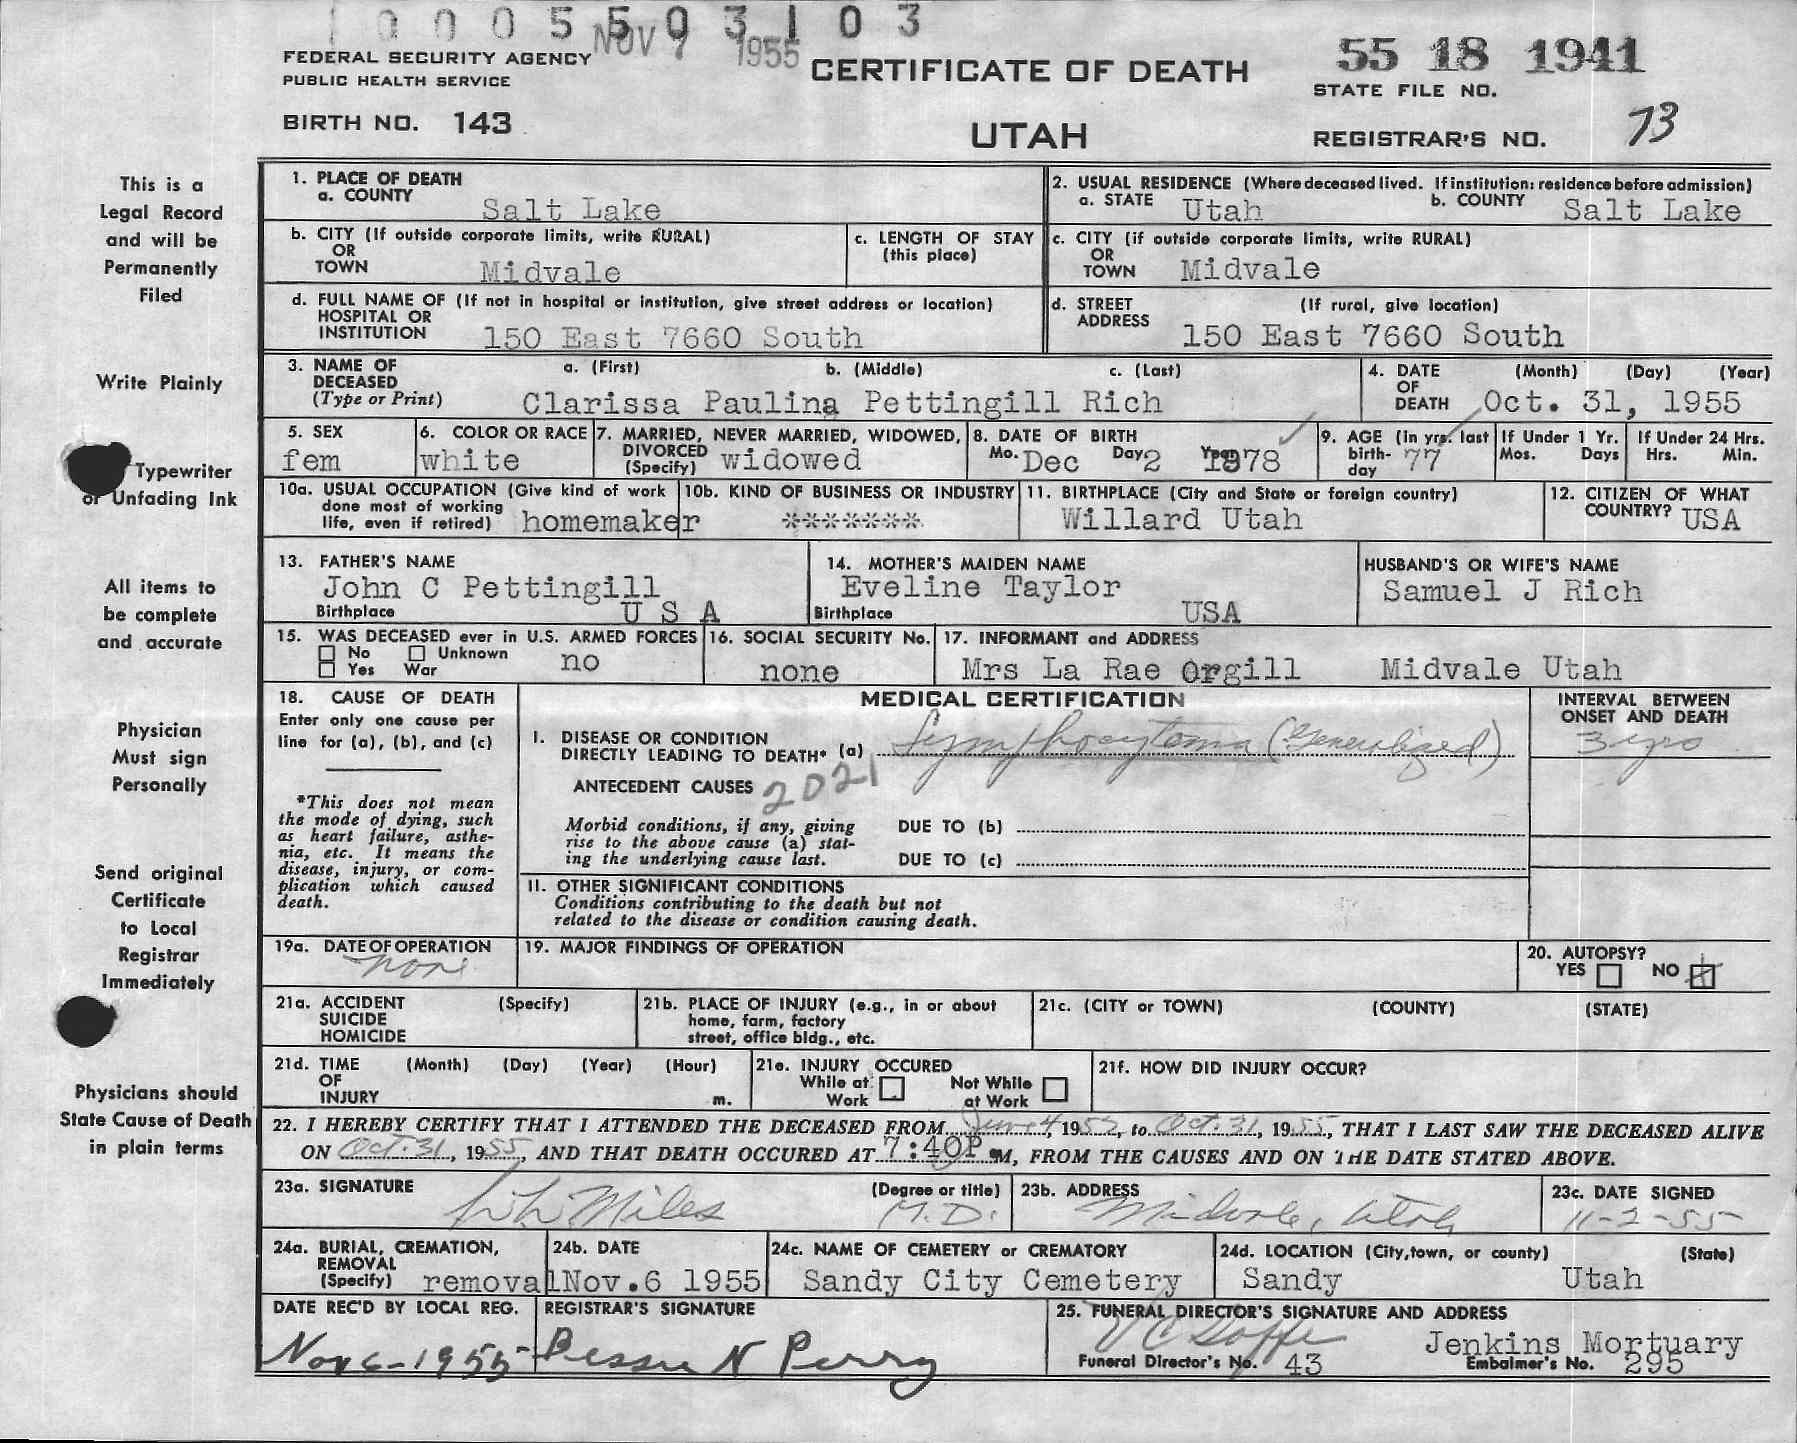 0005503103
NOV 7 1955
FEDERAL SECURITY AGENCY
PUBLIC HEALTH SERVICE
BIRTH NO. 143
CERTIFICATE OF DEATH
UTAH
55 18 1941
STATE FILE NO.
REGISTRAR'S NO. 73
This is a
Legal Record
and will be
Permanently
Filed
Write Plainly
Typewriter
or Unfading Ink
All items to
be complete
and accurate
Physician
Must sign
Personally
Send original
Certificate
to Local
Registrar
Immediately
Physicians should
State Cause of Death
in plain terms
1. PLACE OF DEATH
a. COUNTY Salt Lake
2. USUAL RESIDENCE (Where deceased lived. If institution: residence before admission)
a. STATE Utah b. COUNTY Salt Lake
b. CITY (If outside corporate limits, write RURAL)
OR
TOWN Midvale
c. LENGTH OF STAY
(this place)
c. CITY (if outside corporate limits, write RURAL)
OR
TOWN Midvale
d. FULL NAME OF (If not in hospital or institution, give street address or location)
HOSPITAL OR
INSTITUTION 150 East 7660 South
d. STREET (If rural, give location)
ADDRESS 150 East 7660 South
3. NAME OF a. (First) b. (Middle) c. (Last)
DECEASED
(Type or Print) Clarissa Paulina Pettingill Rich
4. DATE (Month) (Day) (Year)
OF
DEATH Oct. 31, 1955
5. SEX
fem
6. COLOR OR RACE
white
7. MARRIED, NEVER MARRIED, WIDOWED,
DIVORCED
(Specify) widowed
8. DATE OF BIRTH
Mo. Dec Day 2 Year 1878
9. AGE (In yrs. last
birth-
day 77
If Under 1 Yr.
Mos. Days
If Under 24 Hrs.
Hrs. Min.
10a. USUAL OCCUPATION (Give kind of work
done most of working
life, even if retired) homemaker
10b. KIND OF BUSINESS OR INDUSTRY
*******
11. BIRTHPLACE (City and State or foreign country)
Willard Utah
12. CITIZEN OF WHAT
COUNTRY? USA
13. FATHER'S NAME
John C Pettingill
Birthplace U S A
14. MOTHER'S MAIDEN NAME
Eveline Taylor
Birthplace USA
HUSBAND'S OR WIFE'S NAME
Samuel J Rich
15. WAS DECEASED ever in U.S. ARMED FORCES
No Unknown no
Yes War
16. SOCIAL SECURITY No.
none
17. INFORMANT and ADDRESS
Mrs La Rae Orgill Midvale Utah
18. CAUSE OF DEATH
Enter only one cause per
line for (a), (b), and (c)
*This does not mean
the mode of dying, such
as heart failure, asthe-
nia, etc. It means the
disease, injury, or com-
plication which caused
death.
MEDICAL CERTIFICATION
INTERVAL BETWEEN
ONSET AND DEATH
I. DISEASE OR CONDITION
DIRECTLY LEADING TO DEATH* (a) Lymphocytoma (Generalized) 3 yrs
ANTECEDENT CAUSES 2021
Morbid conditions, if any, giving
rise to the above cause (a) stat-
ing the underlying cause last.
DUE TO (b)
DUE TO (c)
II. OTHER SIGNIFICANT CONDITIONS
Conditions contributing to the death but not
related to the disease or condition causing death.
19a. DATE OF OPERATION
none
19. MAJOR FINDINGS OF OPERATION
20. AUTOPSY?
YES NO
21a. ACCIDENT (Specify)
SUICIDE
HOMICIDE
21b. PLACE OF INJURY (e.g., in or about
home, farm, factory
street, office bldg., etc.
21c. (CITY or TOWN) (COUNTY) (STATE)
21d. TIME (Month) (Day) (Year) (Hour)
OF
INJURY m.
21e. INJURY OCCURED
While at Work Not While at Work
21f. HOW DID INJURY OCCUR?
22. I HEREBY CERTIFY THAT I ATTENDED THE DECEASED FROM June 4, 1952, to Oct. 31, 1955, THAT I LAST SAW THE DECEASED ALIVE
ON Oct. 31, 1955, AND THAT DEATH OCCURED AT 7:40P M, FROM THE CAUSES AND ON THE DATE STATED ABOVE.
23a. SIGNATURE (Degree or title)
Miles M.D.
23b. ADDRESS
Midvale, Utah
23c. DATE SIGNED
11-2-55
24a. BURIAL, CREMATION,
REMOVAL
(Specify) removal
24b. DATE
Nov. 6 1955
24c. NAME OF CEMETERY or CREMATORY
Sandy City Cemetery
24d. LOCATION (City, town, or county) (State)
Sandy Utah
DATE REC'D BY LOCAL REG.
Nov 6-1955
REGISTRAR'S SIGNATURE
Bessie N Perry
25. FUNERAL DIRECTOR'S SIGNATURE AND ADDRESS
Jenkins Mortuary
Funeral Director's No. 43 Embalmer's No. 295